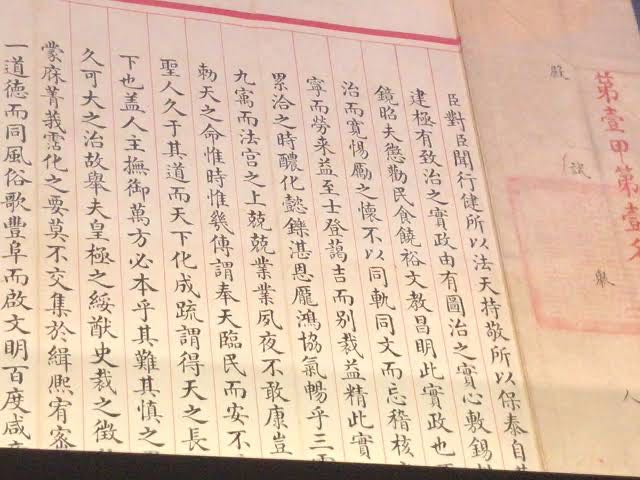 第壹甲第壹
殿
試
舉
人
臣對臣聞行健所以法天持敬所以保泰自
建極有致治之實政由有圖治之實心敷錫
鏡昭夫懲勸民食饒裕文教昌明此實政也
治而寬惕勵之懷不以同軌同文而忘稽核
寧而勞來益至士登藹吉而別裁益精此實
累洽之時醲化懿鑠湛恩厖鴻協氣暢乎三
九寓而法宮之上兢兢業業夙夜不敢康豈
勑天之命惟時惟幾傳謂奉天臨民而安不
聖人久于其道而天下化成疏謂得天之長
下也盖人主撫御萬方必本乎其難其慎之
久可大之治故舉夫皇極之綏猷史裁之徵
蒙庥菁莪霑化之要莫不交集於緝熙宥密
一道德而同風俗歌豐阜而啟文明百度咸